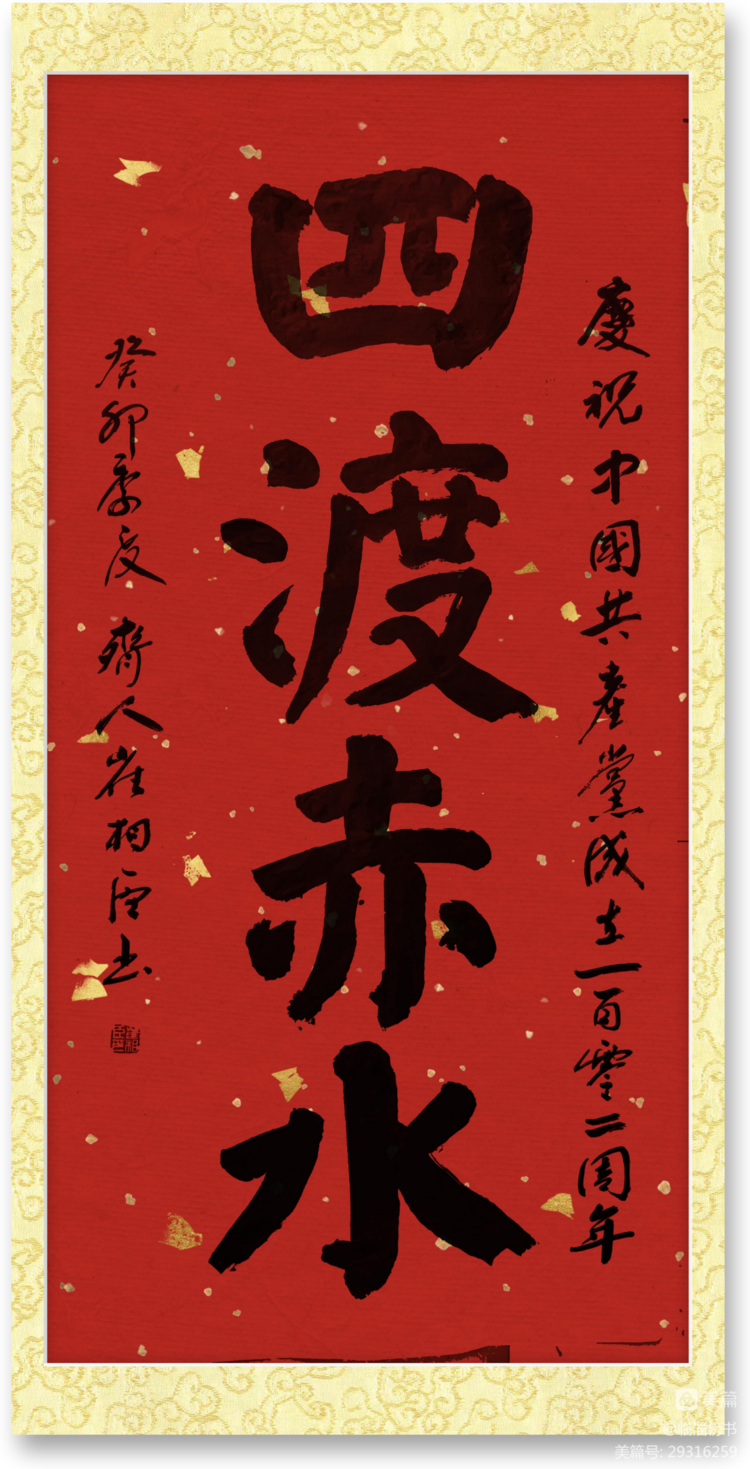 慶祝中國共產黨成立一百零二周年
四渡赤水
癸卯季夏 齊人崔相书
美篇
美篇号: 29316259